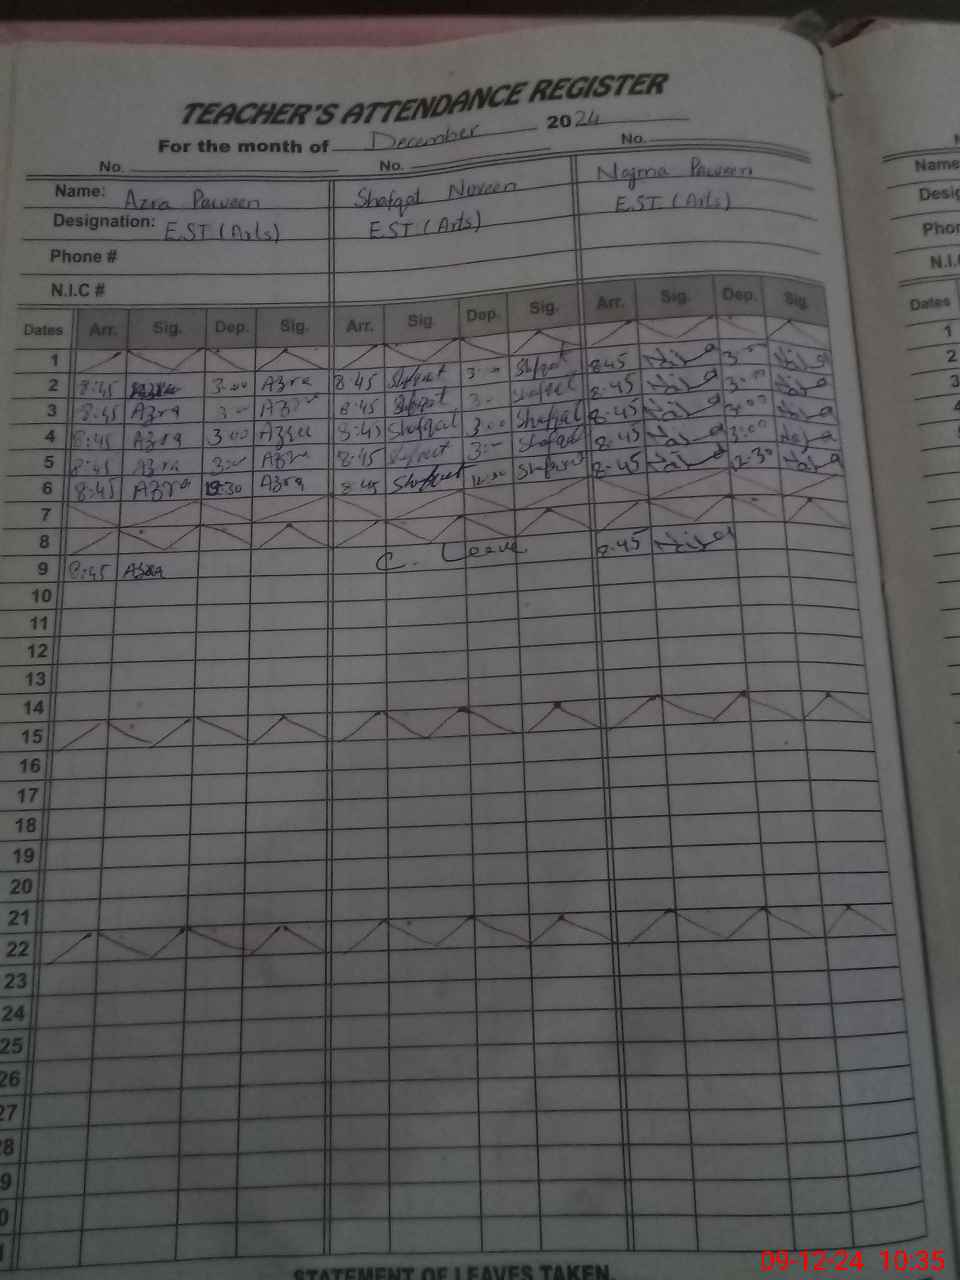 TEACHER'S ATTENDANCE REGISTER
For the month of December 2024
No. No. No.
Name: Azra Parveen Shafqat Noreen Najma Parveen
Designation: E.S.T (Arts) E.S.T (Arts) E.S.T (Arts)
Phone #
N.I.C #
Dates Arr. Sig. Dep. Sig. Arr. Sig. Dep. Sig. Arr. Sig. Dep. Sig.
1
2 8:45 3:00 Azra 8:45 Shafqat 3:00 Shafqat 8:45 3:00
3 8:45 Azra 3:00 Azra 8:45 Shafqat 3:00 Shafqat 8:45 3:00
4 8:45 Azra 3:00 Azra 8:45 Shafqat 3:00 Shafqat 8:45 3:00
5 8:45 Azra 3:00 Azra 8:45 Shafqat 3:00 Shafqat 8:45 3:00
6 8:45 Azra 12:30 Azra 8:45 Shafqat 12:30 Shafqat 8:45 12:30
7
8
9 8:45 Azra C. Leave 8:45
10
11
12
13
14
15
16
17
18
19
20
21
22
23
24
25
26
27
8
9
0
STATEMENT OF LEAVES TAKEN
Name
Desig
Phon
N.I.
Dates
1
2
3
09-12-24 10:35